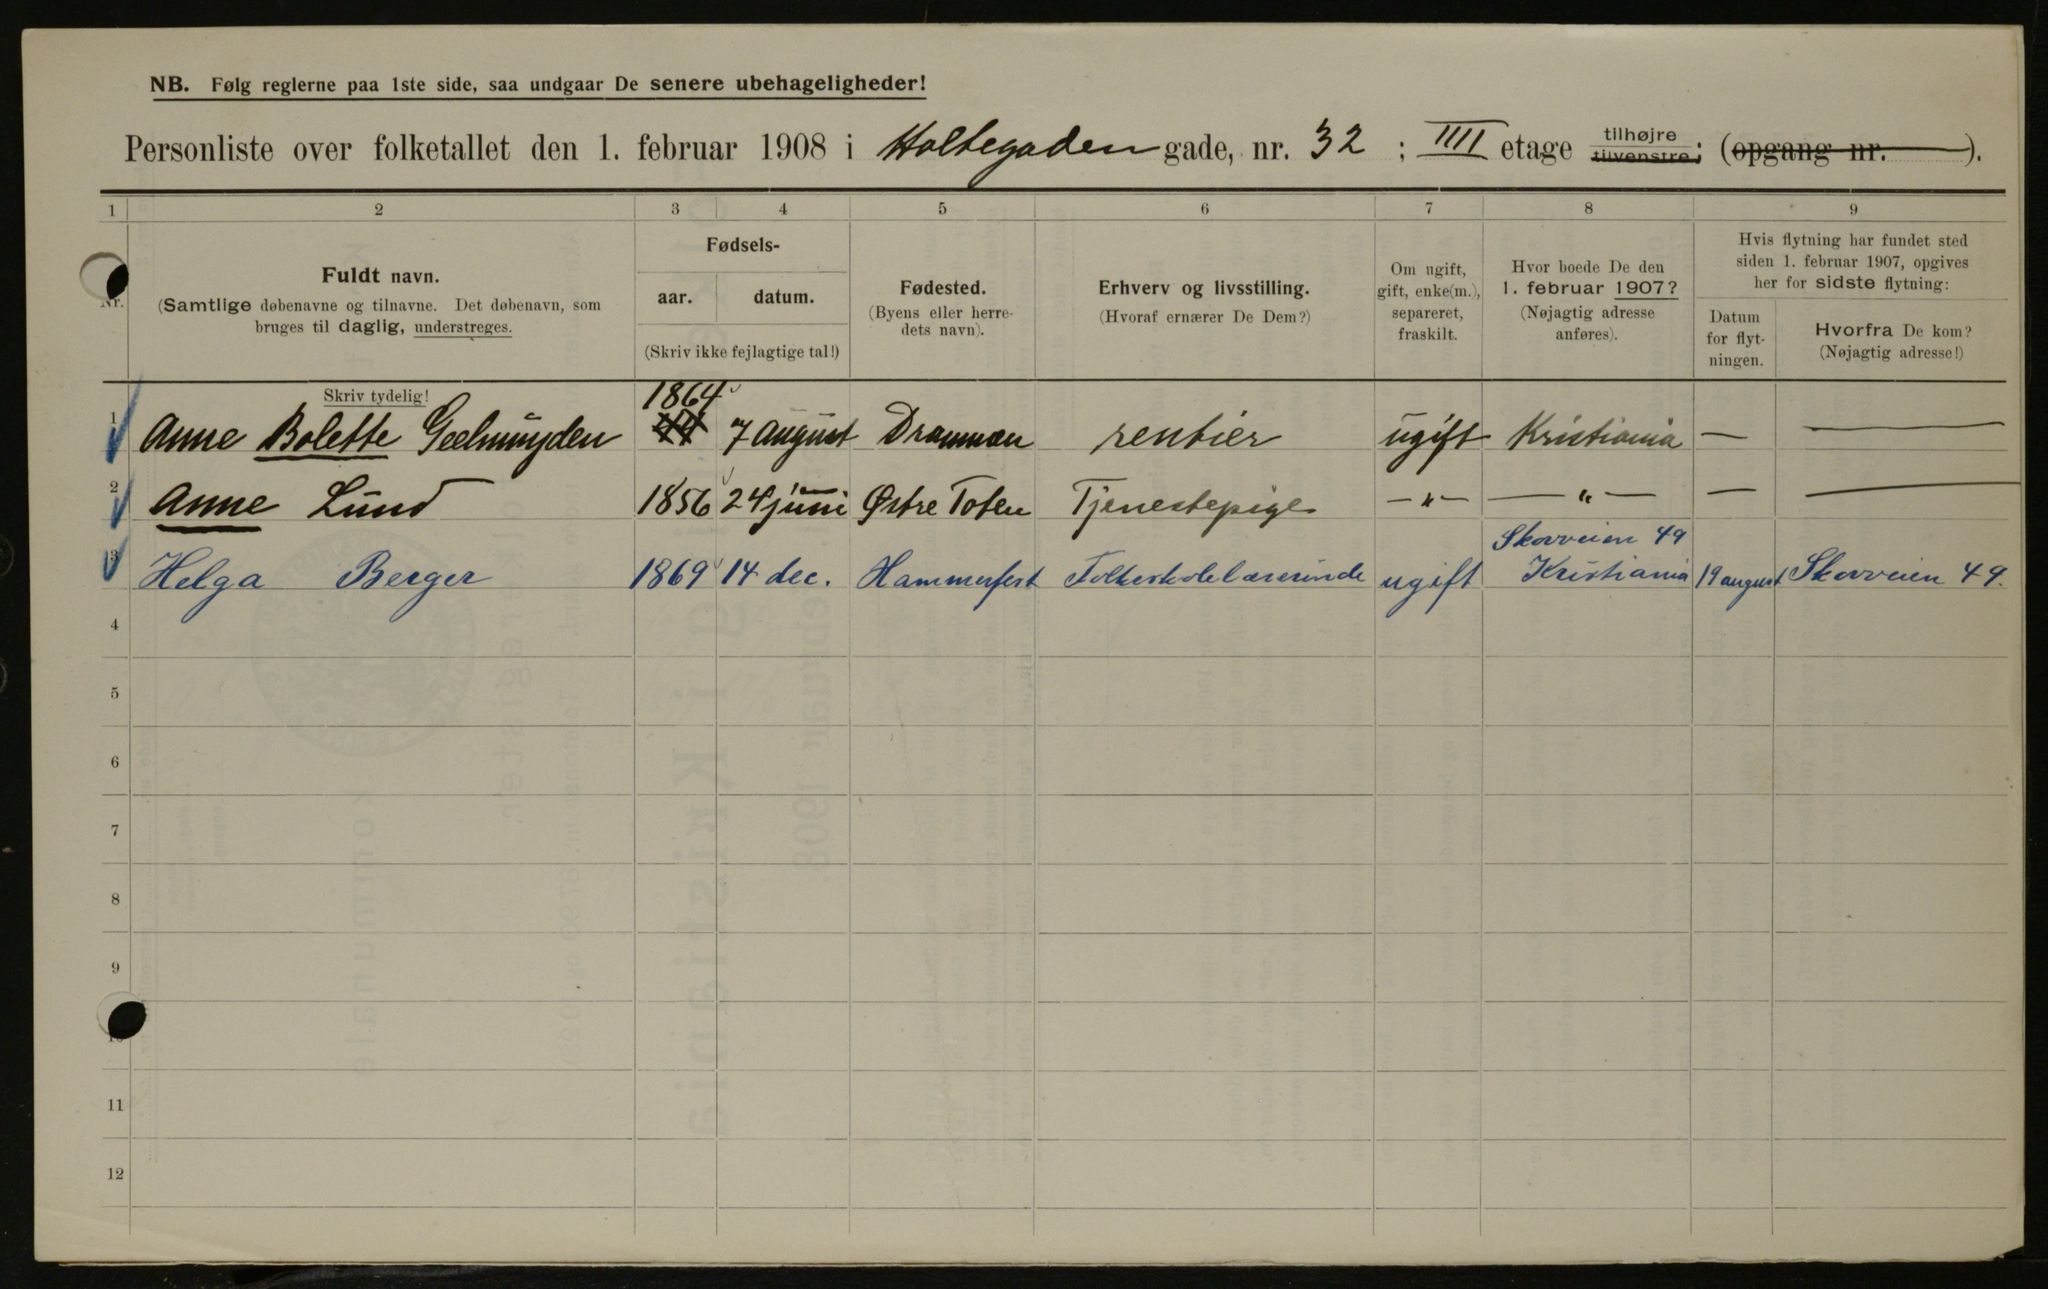 NB. Følg reglerne paa 1ste side, saa undgaar De senere ubehageligheder!
Personliste over folketallet den 1. februar 1908 i Holtegaden gade, nr. 32 ; IIII etage tilhøjre tilvenstre; (opgang nr. ).
1 2 3 4 5 6 7 8 9
Nr.
Fuldt navn.
(Samtlige døbenavne og tilnavne. Det døbenavn, som
bruges til daglig, understreges.
Skriv tydelig!
Fødsels-
aar. datum.
(Skriv ikke fejlagtige tal!)
Fødested.
(Byens eller herre-
dets navn).
Erhverv og livsstilling.
(Hvoraf ernærer De Dem?)
Om ugift,
gift, enke(m.),
separeret,
fraskilt.
Hvor boede De den
1. februar 1907?
(Nøjagtig adresse
anføres).
Hvis flytning har fundet sted
siden 1. februar 1907, opgives
her for sidste flytning:
Datum
for flyt-
ningen.
Hvorfra De kom?
(Nøjagtig adresse!)
1 Anne Bolette Geelmuyden 1864 7 august Drammen rentier ugift Kristiania — —
2 Anne Lund 1856 24 juni Østre Toten Tjenestepige —"— —"— — —
3 Helga Berger 1869 14 dec. Hammerfest Folkeskolelærerinde ugift Skovveien 49 Kristiania 19 august Skovveien 49.
4
5
6
7
8
9
10
11
12